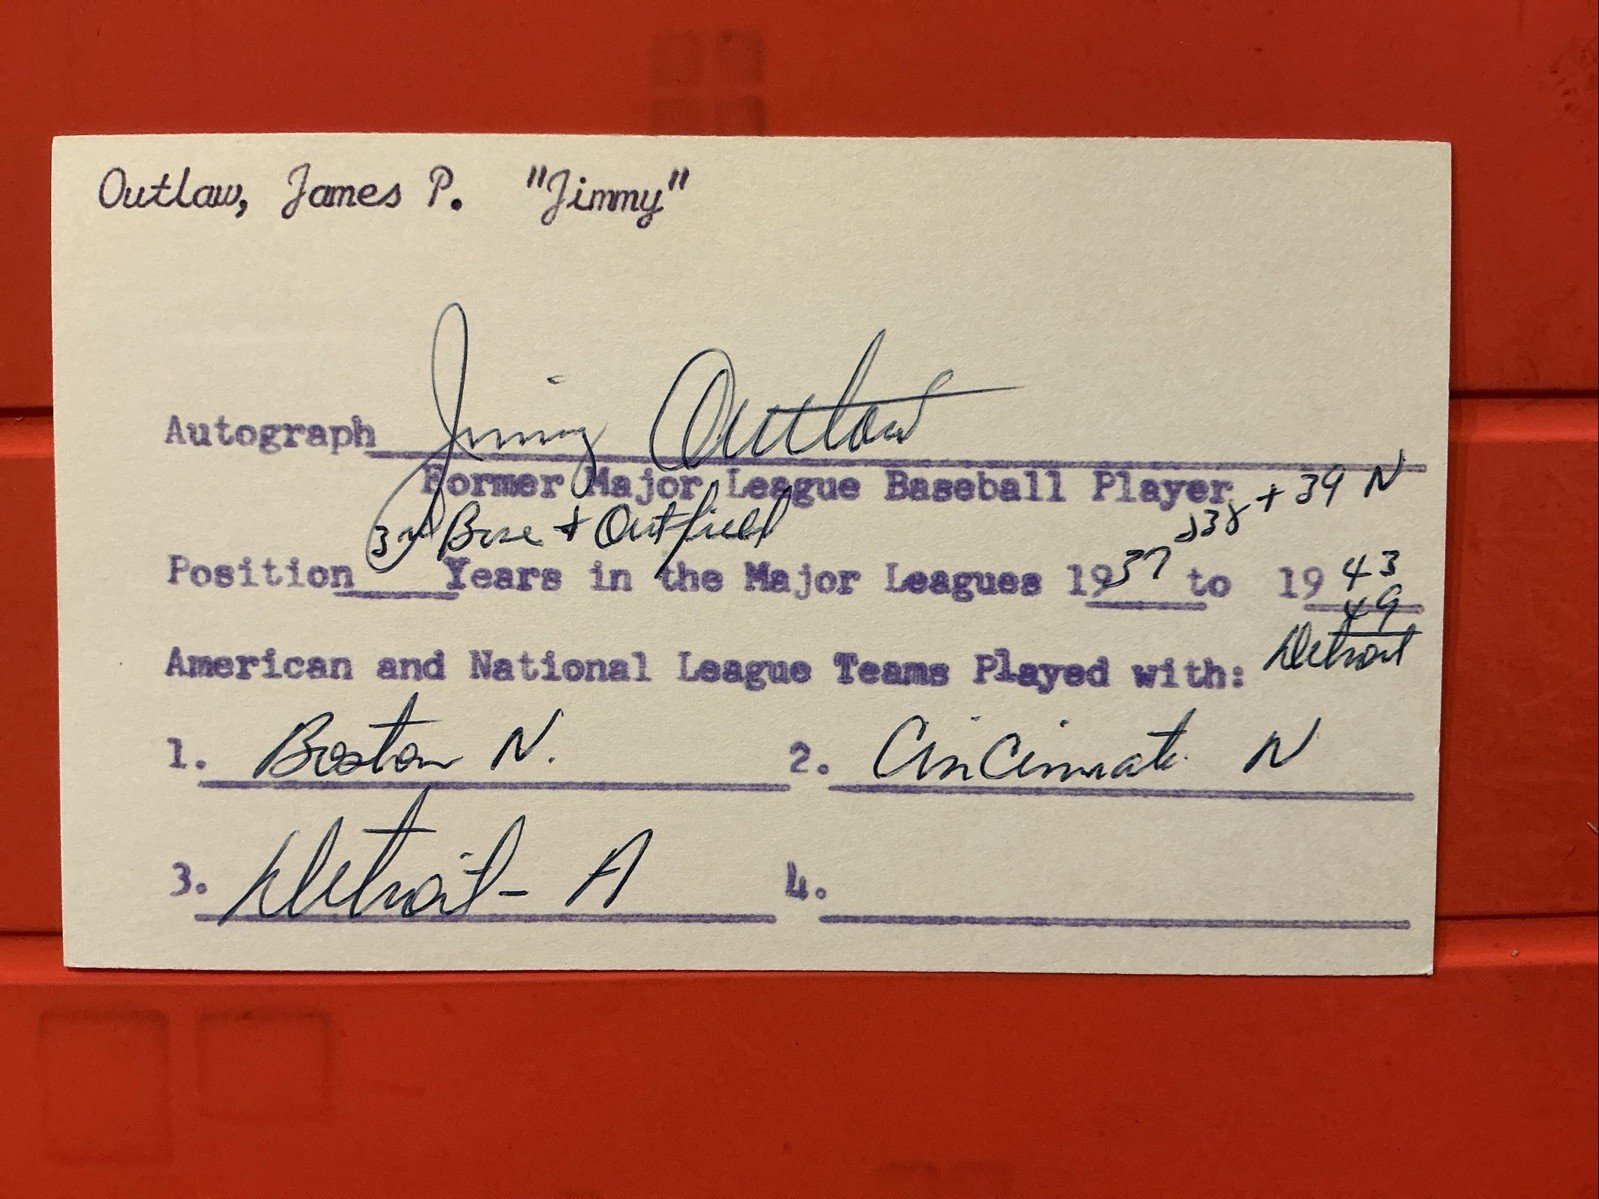 Outlaw, James P. "Jimmy"
Autograph Jimmy Outlaw
Former Major League Baseball Player
38 + 39 N
3rd Base + Outfield
Position Years in the Major Leagues 1937 to 1943
49
American and National League Teams Played with: Detroit
1. Boston N. 2. Cincinnati N
3. Detroit - A 4.